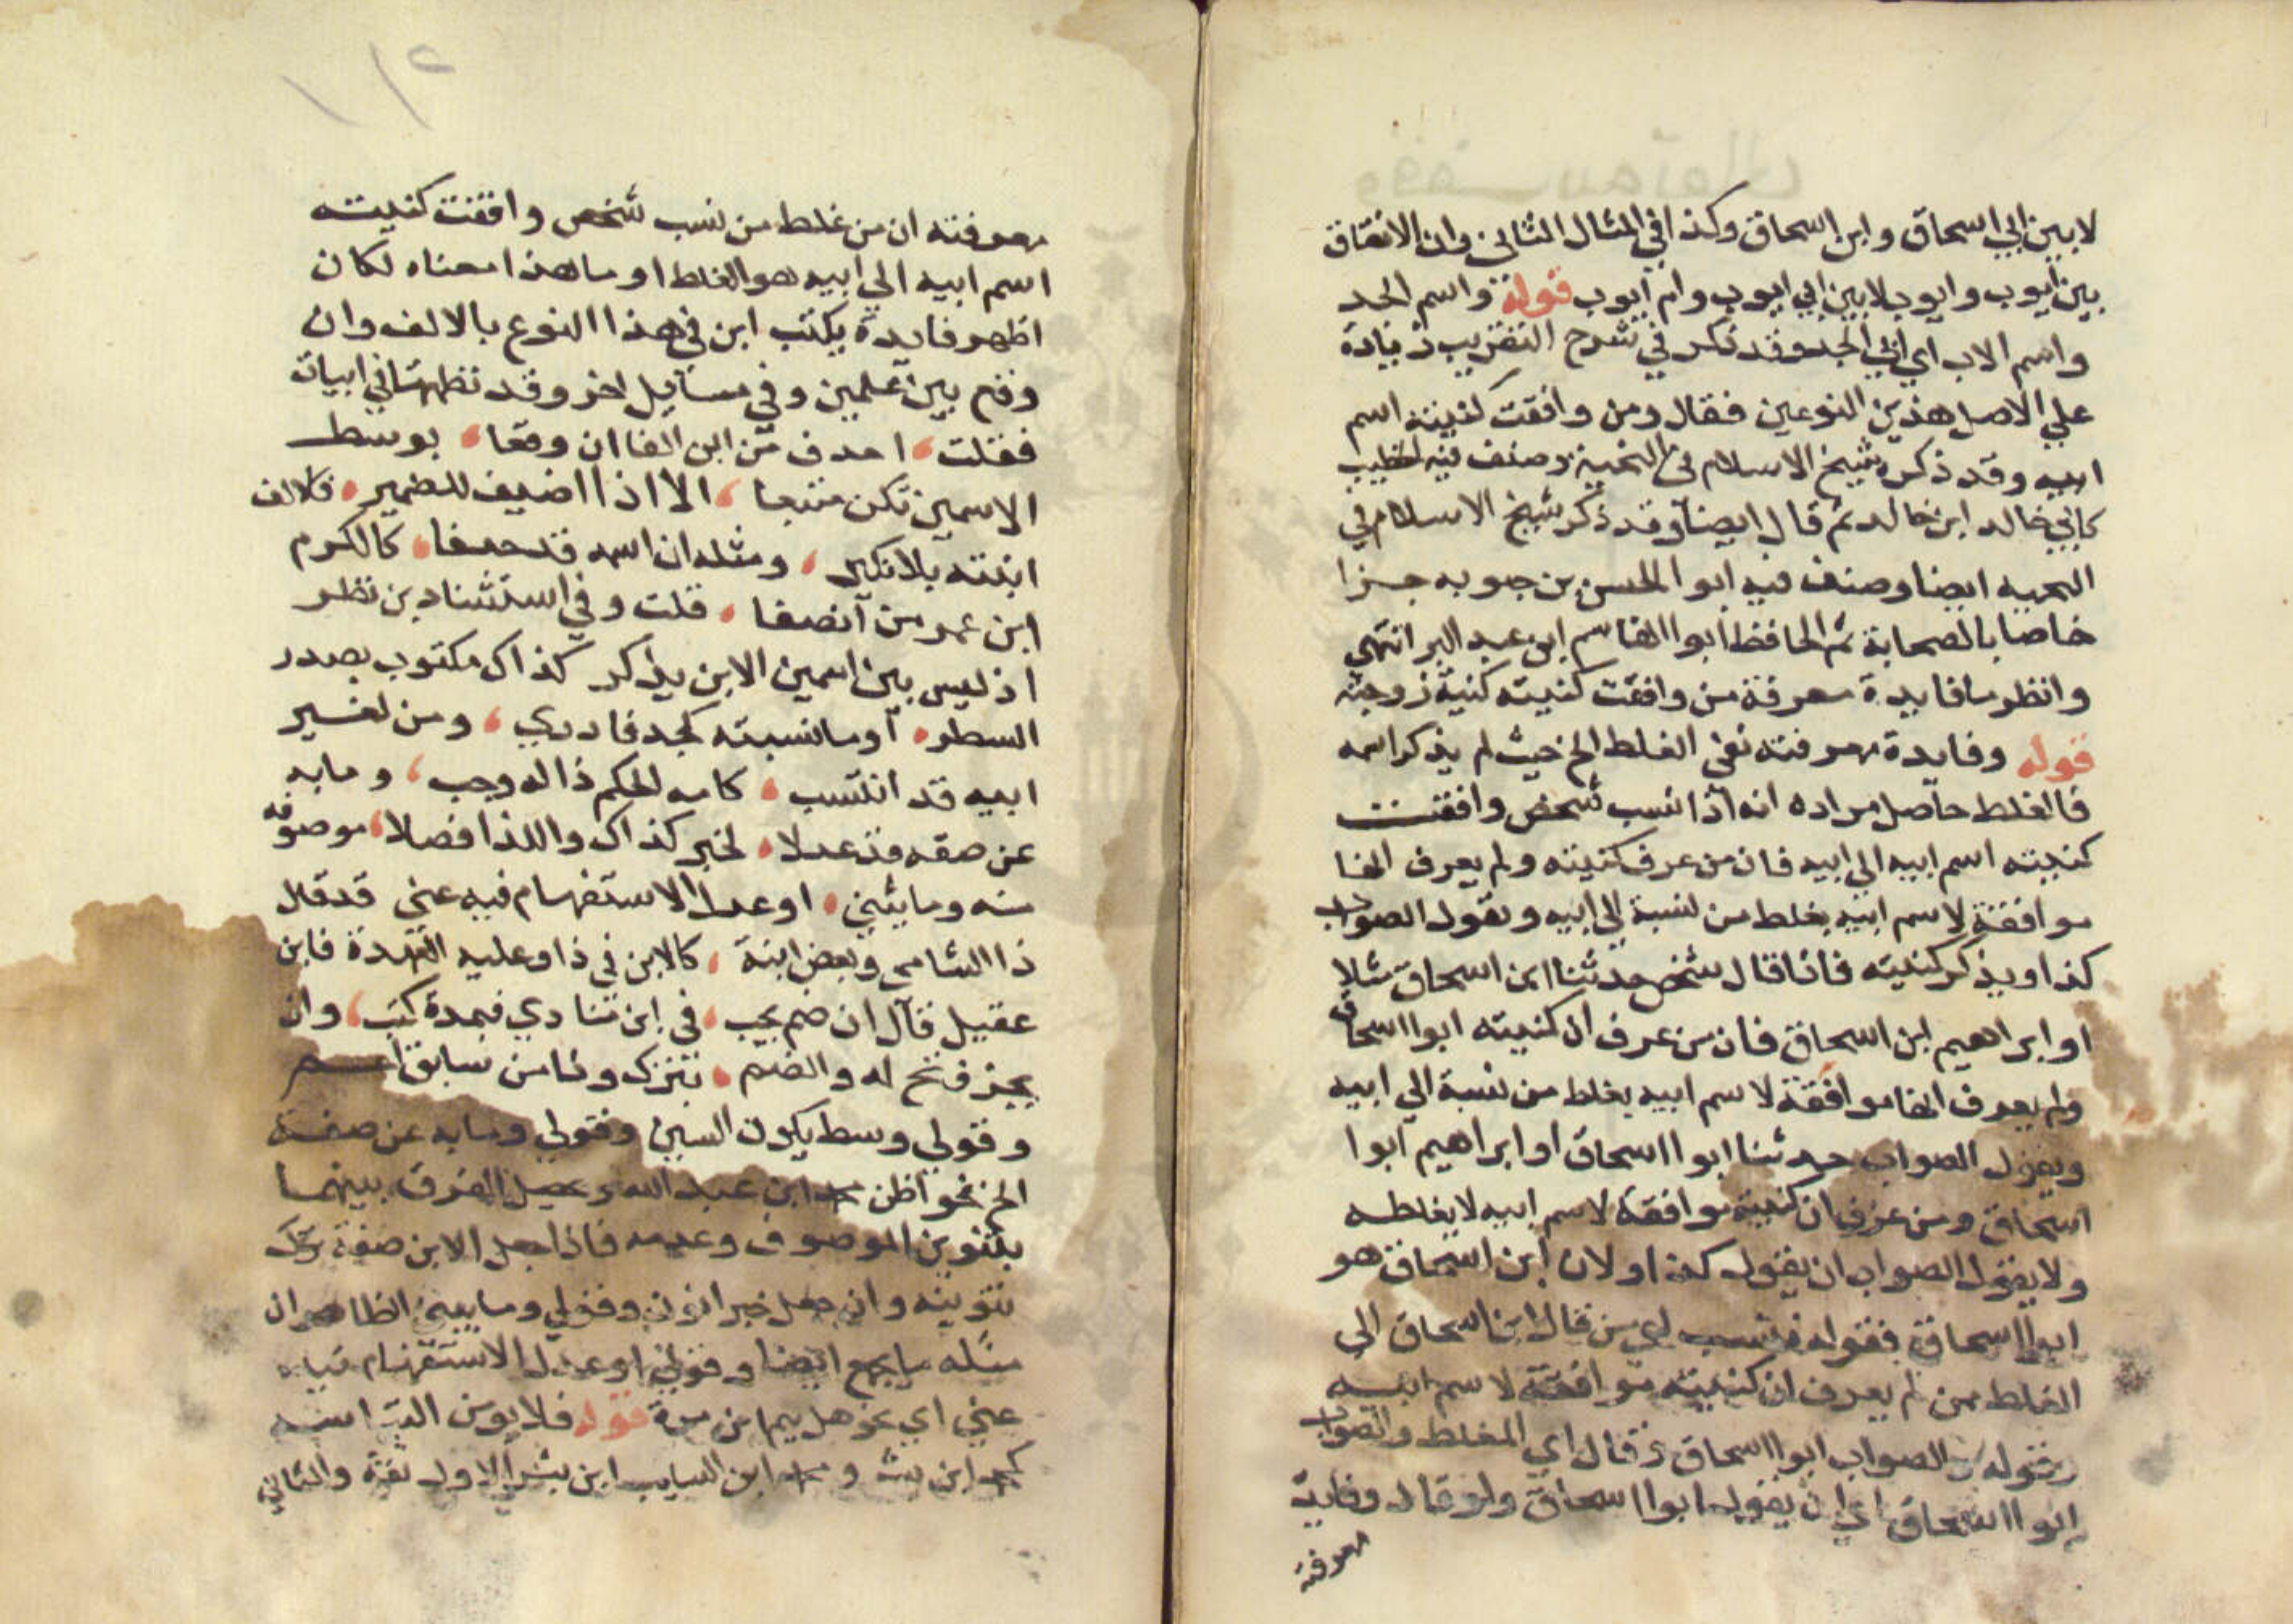 لا بين ابي اسحاق وابن اسحاق وكذا في المثال الثاني وان الاتفاق
بين ايوب وايوب لا بين ابي ايوب وام ايوب قوله واسم الجد
واسم الاب اي ابي الجد وقد ذكر في شرح التقريب زيادة
علي الاصل هذين النوعين فقال ومن وافقت كنيته اسم
ابيه وقد ذكره شيخ الاسلام في النخبة وصنف فيه الخطيب
كابي خالد ابن خالد ثم قال ايضا وقد ذكر شيخ الاسلام في
النخبه ايضا وصنف فيه ابوا الحسن بن حيويه جزا
خاصا بالصحابة ثم الحافظ ابوا القاسم ابن عبد البر انتهي
وانظر ما فايدة معرفة من وافقت كنيته كنية زوجته
قوله وفايدة معرفته نفي الغلط الخ حيث لم يذكر اسمه
فالغلط حاصل مراده انه اذا نسب شخص وافقت
كنيته اسم ابيه الي ابيه فان من عرف كنيته ولم يعرف انها
موافقة لاسم ابيه يغلط من نسبة الي ابيه ويقول الصواب
كذا ويذكر كنيته فاذا قال شخص حدثنا ابن اسحاق مثلا
او ابراهيم ابن اسحاق فان من عرف ان كنيته ابوا اسحاق
ولم يعرف انها موافقة لاسم ابيه يغلط من نسبة الي ابيه
ويقول الصواب حدثنا ابوا اسحاق او ابراهيم ابوا
اسحاق ومن عرف ان كنيته موافقة لاسم ابيه لا يغلطه
ولا يقول الصواب ان يقول كذا ولان ابن اسحاق هو
ابوا اسحاق فقوله فنسب اي من قال ابن اسحاق الي
الغلط ممن لم يعرف ان كنيته موافقة لاسم ابيه
وقوله والصواب ابوا اسحاق وقال اي المغلط والصواب
ابوا اسحاق اي ان يقول ابوا اسحاق ولو قال وفايدة
معرفته
معرفته ان من غلط من نسب شخص وافقت كنيته
اسم ابيه الي ابيه هو الغلط او ما هذا معناه لكان
اظهر فايدة يكتب ابن في هذا النوع بالالف وان
وقع بين علمين وفي مسايل اخر وقد نظمتها في ابيات
فقلت احذف من ابن الفا ان وقعا بوسط
الاسمين تكن متبعا الا اذا اضيف للضمير فلالف
ابنته بلا نكير ومثله ان اسمه قد حذفا كالكرم
ابن عمر من آنصفا قلت وفي استثناء دين نظر
اذ ليس بين اسمين الابن يذكر كذاك مكتوب بصدر
السطر او ما نسبته لجد فادري ومن لغير
ابيه قد انتسب كامه الحكم ذا له وجب وما به
عن صفه قد عدلا لخبر كذاك والذا فصلا موصوفه
منه وما يثني او عدل الاستفهام فيه عني قد قال
ذا الشامي وبعض ابنة كالابن في ذا وعليه العهدة فابن
عقيل قال ان ضم يجب في ابن تنادي فبمدة كتب وان
يجز فتح له والضم تترك وذا من سابق اعم
وقولي وسط يكون السين وقولي وما به عن صفة
الخ نحو اظن محمد ابن عبد الله ويحصل الفرق بينهما
بتنوين الموصوف وعدمه فاذا جعل الابن صفة ترك
تنوينه وان جعل خبرا نون وقولي وما يثني الظاهر ان
مثله ما يجمع ايضا وقولي او عدل الاستفهام فيه
عني اي نحو هل تيم ابن مرة قوله فلا يومن
كمحمد ابن بشر ومحمد ابن السايب ابن بشر الاول ثقة والثاني